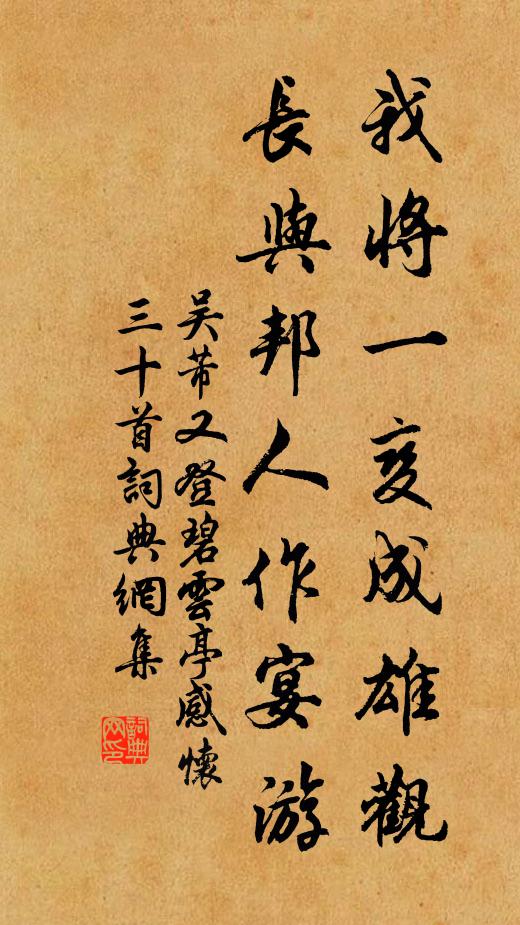 我將一变成雄觀
長與邦人作宴游
吴芾又登碧雲亭感懷
三十首詞典網集
詞典
网印